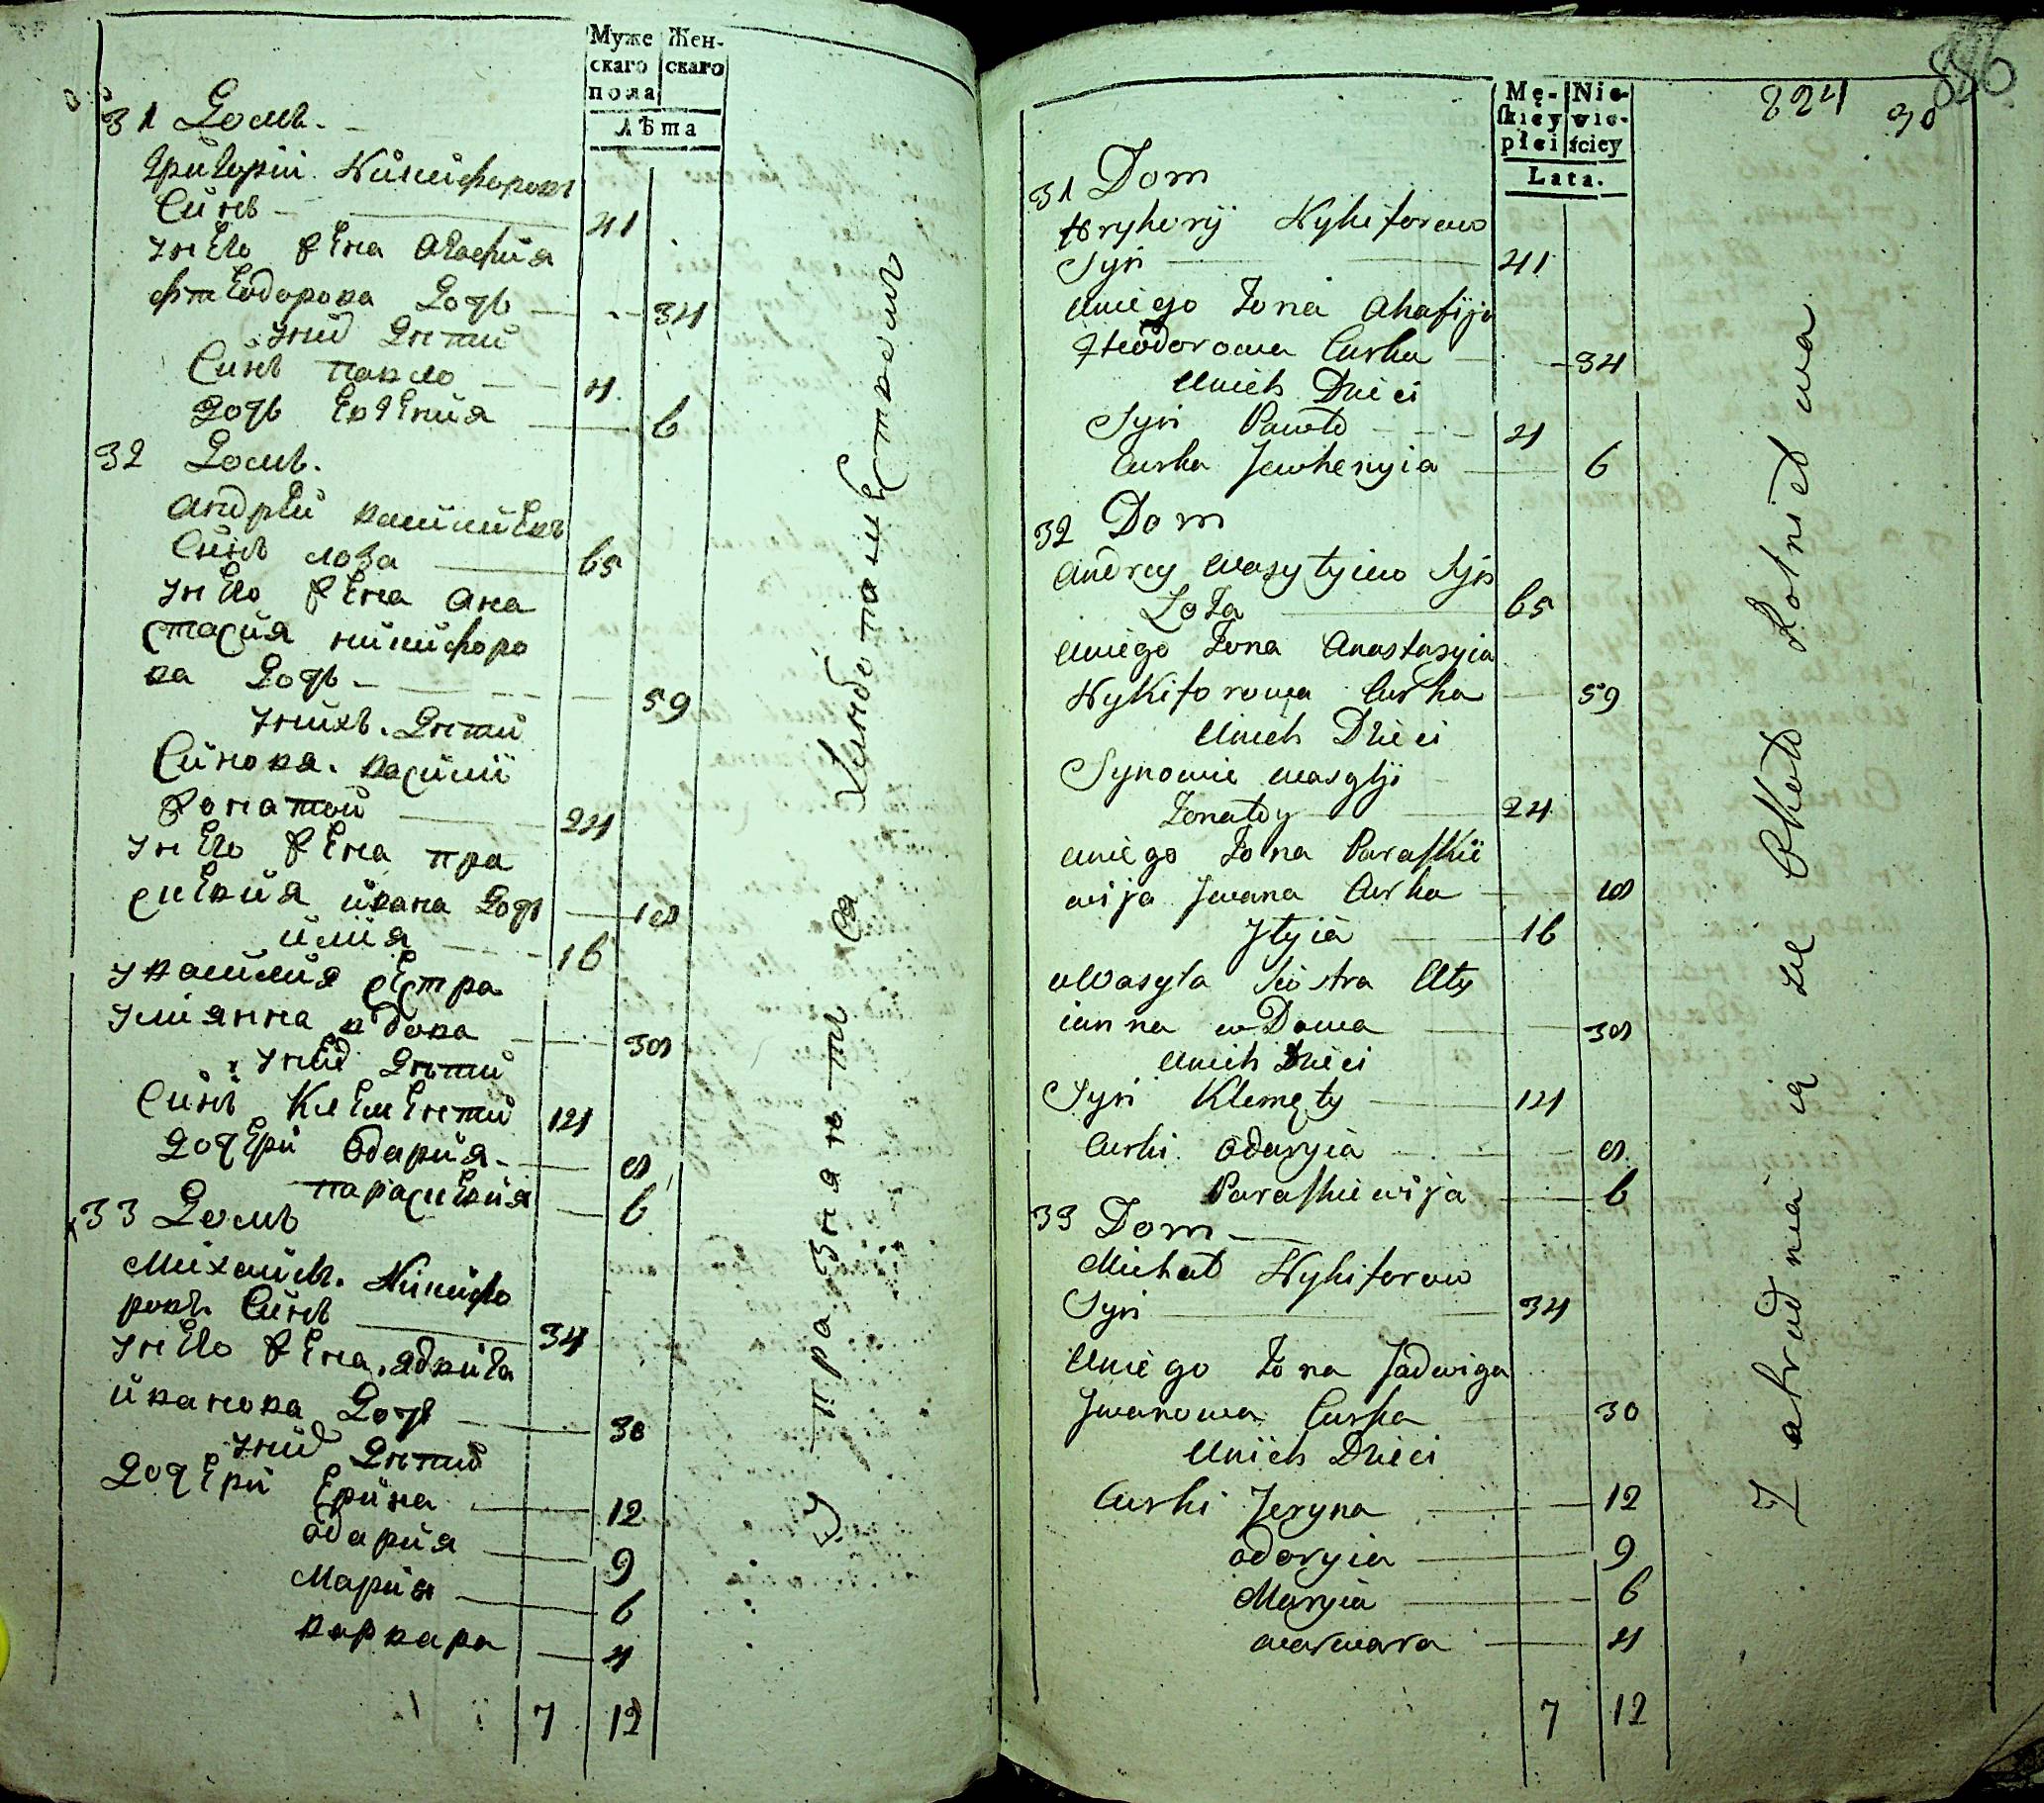 Муже Жен-
скаго скаго
пола
лѣта
31 Домъ.
Григорій Никифоровъ
Синъ 41
унего жена Агафия
Фтеодорова Дочь 34
уних Дѣти
Синъ Павло 4
Дочь Евгения 6
32 Домъ.
Андрей василиевъ
Синъ лоза 65
унего жена Ана
стасия никифоро
ва Дочь 59
унихъ Дѣти
Синовя василий
жонатий 24
унего жена пра
скевия ивана Дочь 18
илия 16
увасиля сестра
улиянна вдова 38
уних Дѣти
Синъ Клементи 14
Дочери Одария 8
параскевия 6
33 Домъ
Михаилъ Никифо
ровъ Синъ 34
унего жена ядвига
иванова Дочь 30
уних Дѣти
Дочери Ерина 12
одария 9
Мария 6
варвара 4
7 12
Упразняютъ ся
824
90
886
Mę- Nie-
ſkiey wie-
płci ściey
Lata.
31 Dom
Hryhory Nykiforow
Syn 41
uniego Żona Ahafija
Fteodorowa Curka 34
unich Dzieci
Syn Pawło 4
Curka Jewhenyia 6
32 Dom
Andrey Wasylyiew Syn
Loza 65
uniego Żona Anastasyia
Nykiforowa Curka 59
unich Dzieci
Synowie wasylyi
Żonaty 24
uniego Żona Paraskie
wija Jwana Curka 18
Jlyia 16
uWasyla siostra Uly
ianna wDowa 38
unich Dzieci
Syn Klemęty 14
Curki Odaryia 8
Paraskiewija 6
33 Dom
Michał Nykiforow
Syn 34
uniego Żona Jadwiga
Jwanowa Curka 30
unich Dzieci
Curki Jeryna 12
odaryia 9
Maryia 6
warwara 4
7 12